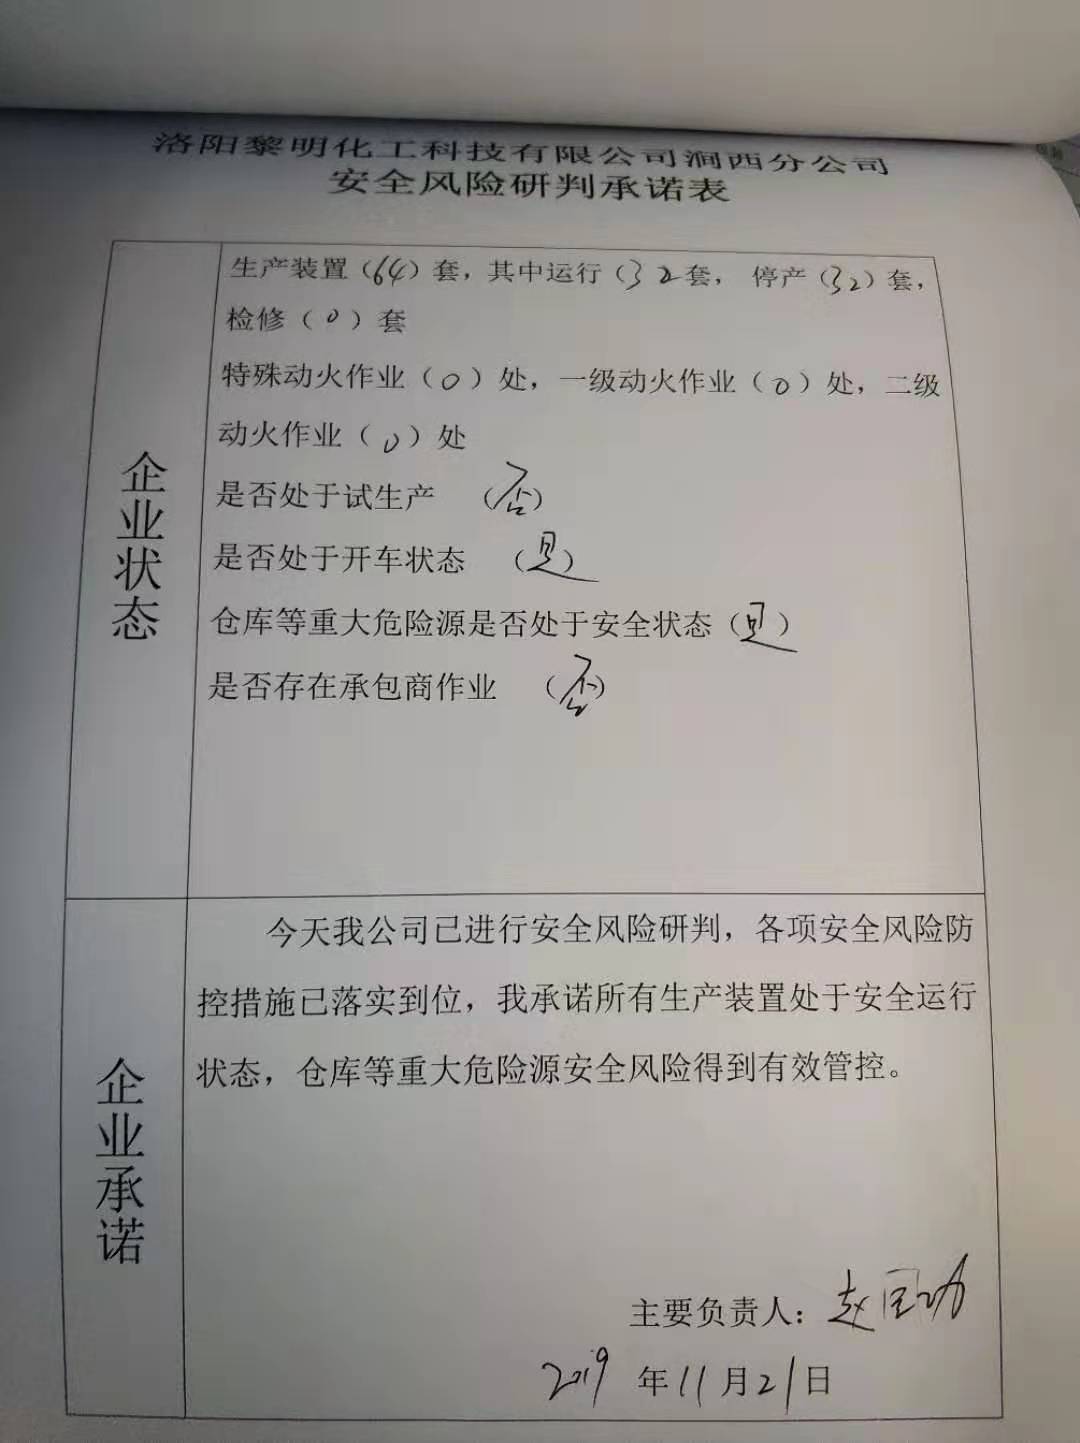 洛阳黎明化工科技有限公司涧西分公司
安全风险研判承诺表
企业状态
生产装置（64）套，其中运行（32套， 停产（32）套，
检修（0）套
特殊动火作业（0）处，一级动火作业（0）处，二级
动火作业（0）处
是否处于试生产 （否）
是否处于开车状态 （是）
仓库等重大危险源是否处于安全状态（是）
是否存在承包商作业 （否）
企业承诺
今天我公司已进行安全风险研判，各项安全风险防
控措施已落实到位，我承诺所有生产装置处于安全运行
状态，仓库等重大危险源安全风险得到有效管控。
主要负责人：赵国功
2019 年 11 月 21 日